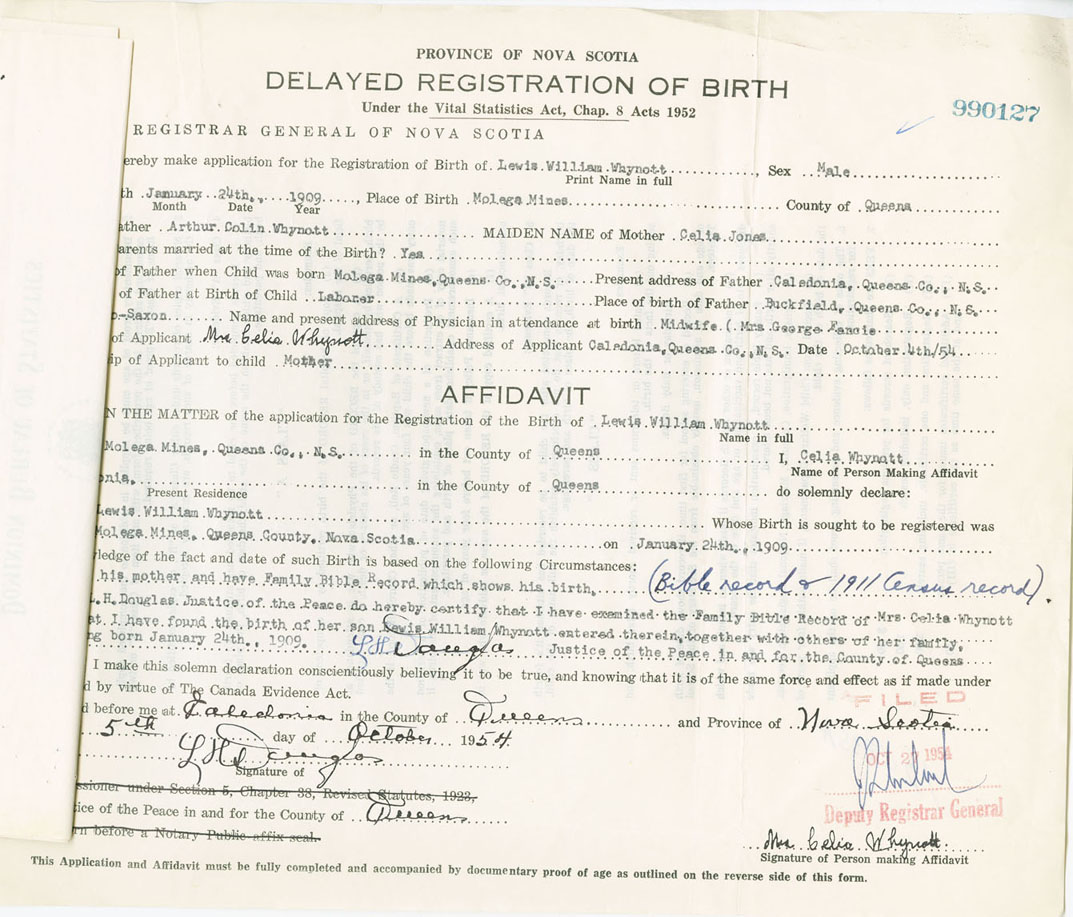 PROVINCE OF NOVA SCOTIA
DELAYED REGISTRATION OF BIRTH
Under the Vital Statistics Act, Chap. 8 Acts 1952
990127
REGISTRAR GENERAL OF NOVA SCOTIA
ereby make application for the Registration of Birth of Lewis William Whynott, Sex Male
Print Name in full
th January 24th., 1909, Place of Birth Molega Mines County of Queens
Month Date Year
ather Arthur Colin Whynott MAIDEN NAME of Mother Celia Jones
arents married at the time of the Birth? Yes
of Father when Child was born Molega Mines, Queens Co., N.S. Present address of Father Caledonia, Queens Co., N.S.
of Father at Birth of Child Laborer Place of birth of Father Buckfield, Queens Co., N.S.
o-Saxon Name and present address of Physician in attendance at birth Midwife (Mrs George Fancie
of Applicant Mrs. Celia Whynott Address of Applicant Caledonia, Queens Co., N.S. Date October 4th/54
ip of Applicant to child Mother
AFFIDAVIT
N THE MATTER of the application for the Registration of the Birth of Lewis William Whynott
Name in full
Molega Mines, Queens Co., N.S. in the County of Queens I, Celia Whynott
Name of Person Making Affidavit
onia, in the County of Queens do solemnly declare:
Present Residence
Lewis William Whynott Whose Birth is sought to be registered was
Molega Mines, Queens County, Nova Scotia on January 24th., 1909
ledge of the fact and date of such Birth is based on the following Circumstances:
his mother and have Family Bible Record which shows his birth. (Bible record & 1911 Census record).
. H. Douglas Justice of the Peace do hereby certify that I have examined the Family Bible Record of Mrs Celia Whynott
at I have found the birth of her son Lewis William Whynott entered therein, together with others of her family,
g born January 24th., 1909. L H Douglas Justice of the Peace in and for the County of Queens
I make this solemn declaration conscientiously believing it to be true, and knowing that it is of the same force and effect as if made under
d by virtue of The Canada Evidence Act.
FILED
d before me at Caledonia in the County of Queens and Province of Nova Scotia
5th day of October 1954
OCT 27 1954
L H Douglas
Signature of
ssioner under Section 5, Chapter 38, Revised Statutes, 1923,
ice of the Peace in and for the County of Queens
Deputy Registrar General
n before a Notary Public affix seal.
Mrs. Celia Whynott
Signature of Person making Affidavit
This Application and Affidavit must be fully completed and accompanied by documentary proof of age as outlined on the reverse side of this form.